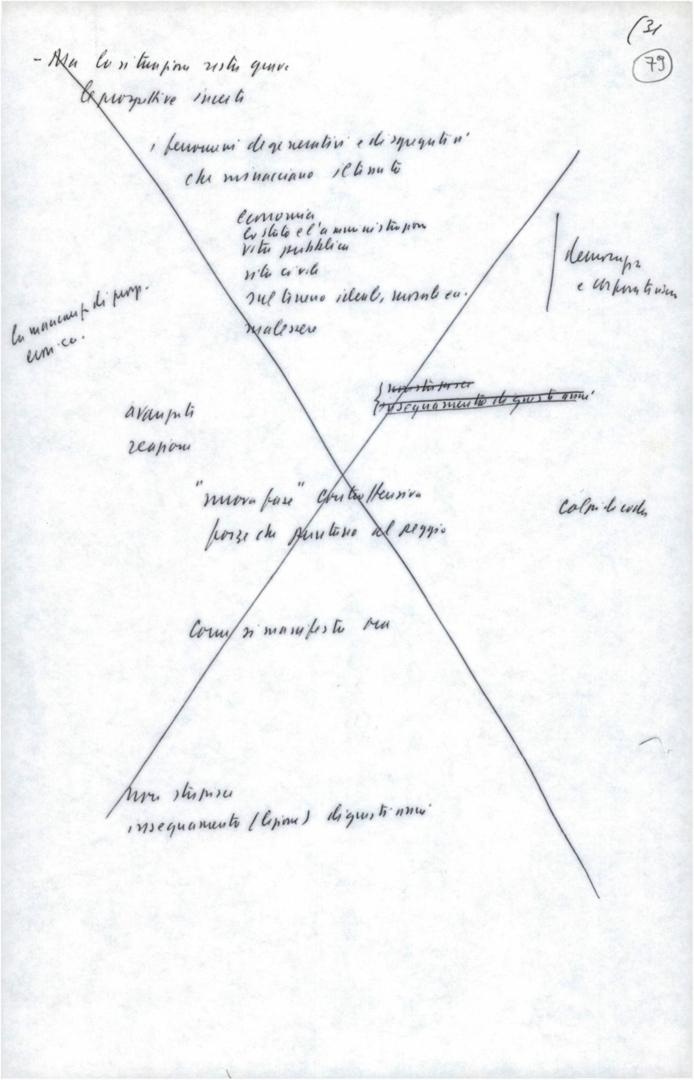 (31
79
- Ma la situazione resta grave
le prospettive incerte
i fenomeni degenerativi e disgregativi
che minacciano il tessuto
economia
lo stato e l'amministrazione
vita pubblica
vita civile
sul terreno ideale, morale
malessere
democrazia
e corporativismo
la mancanza di prosp.
non stupisce
insegnamento di questi anni
avanzata
reazioni
"nuova fase" controffensiva
forze che puntano al peggio
colpi di coda
Come si manifesta ora
non stupisce
insegnamento (lezione) di questi anni